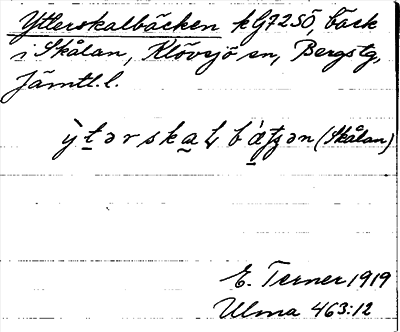 Ytterskalbäcken kG7250, bäck
i Skålan, Klövsjö sn, Bergstg,
Jämtl.l.
(Skålan)
E. Terner 1919
Ulma 463:12